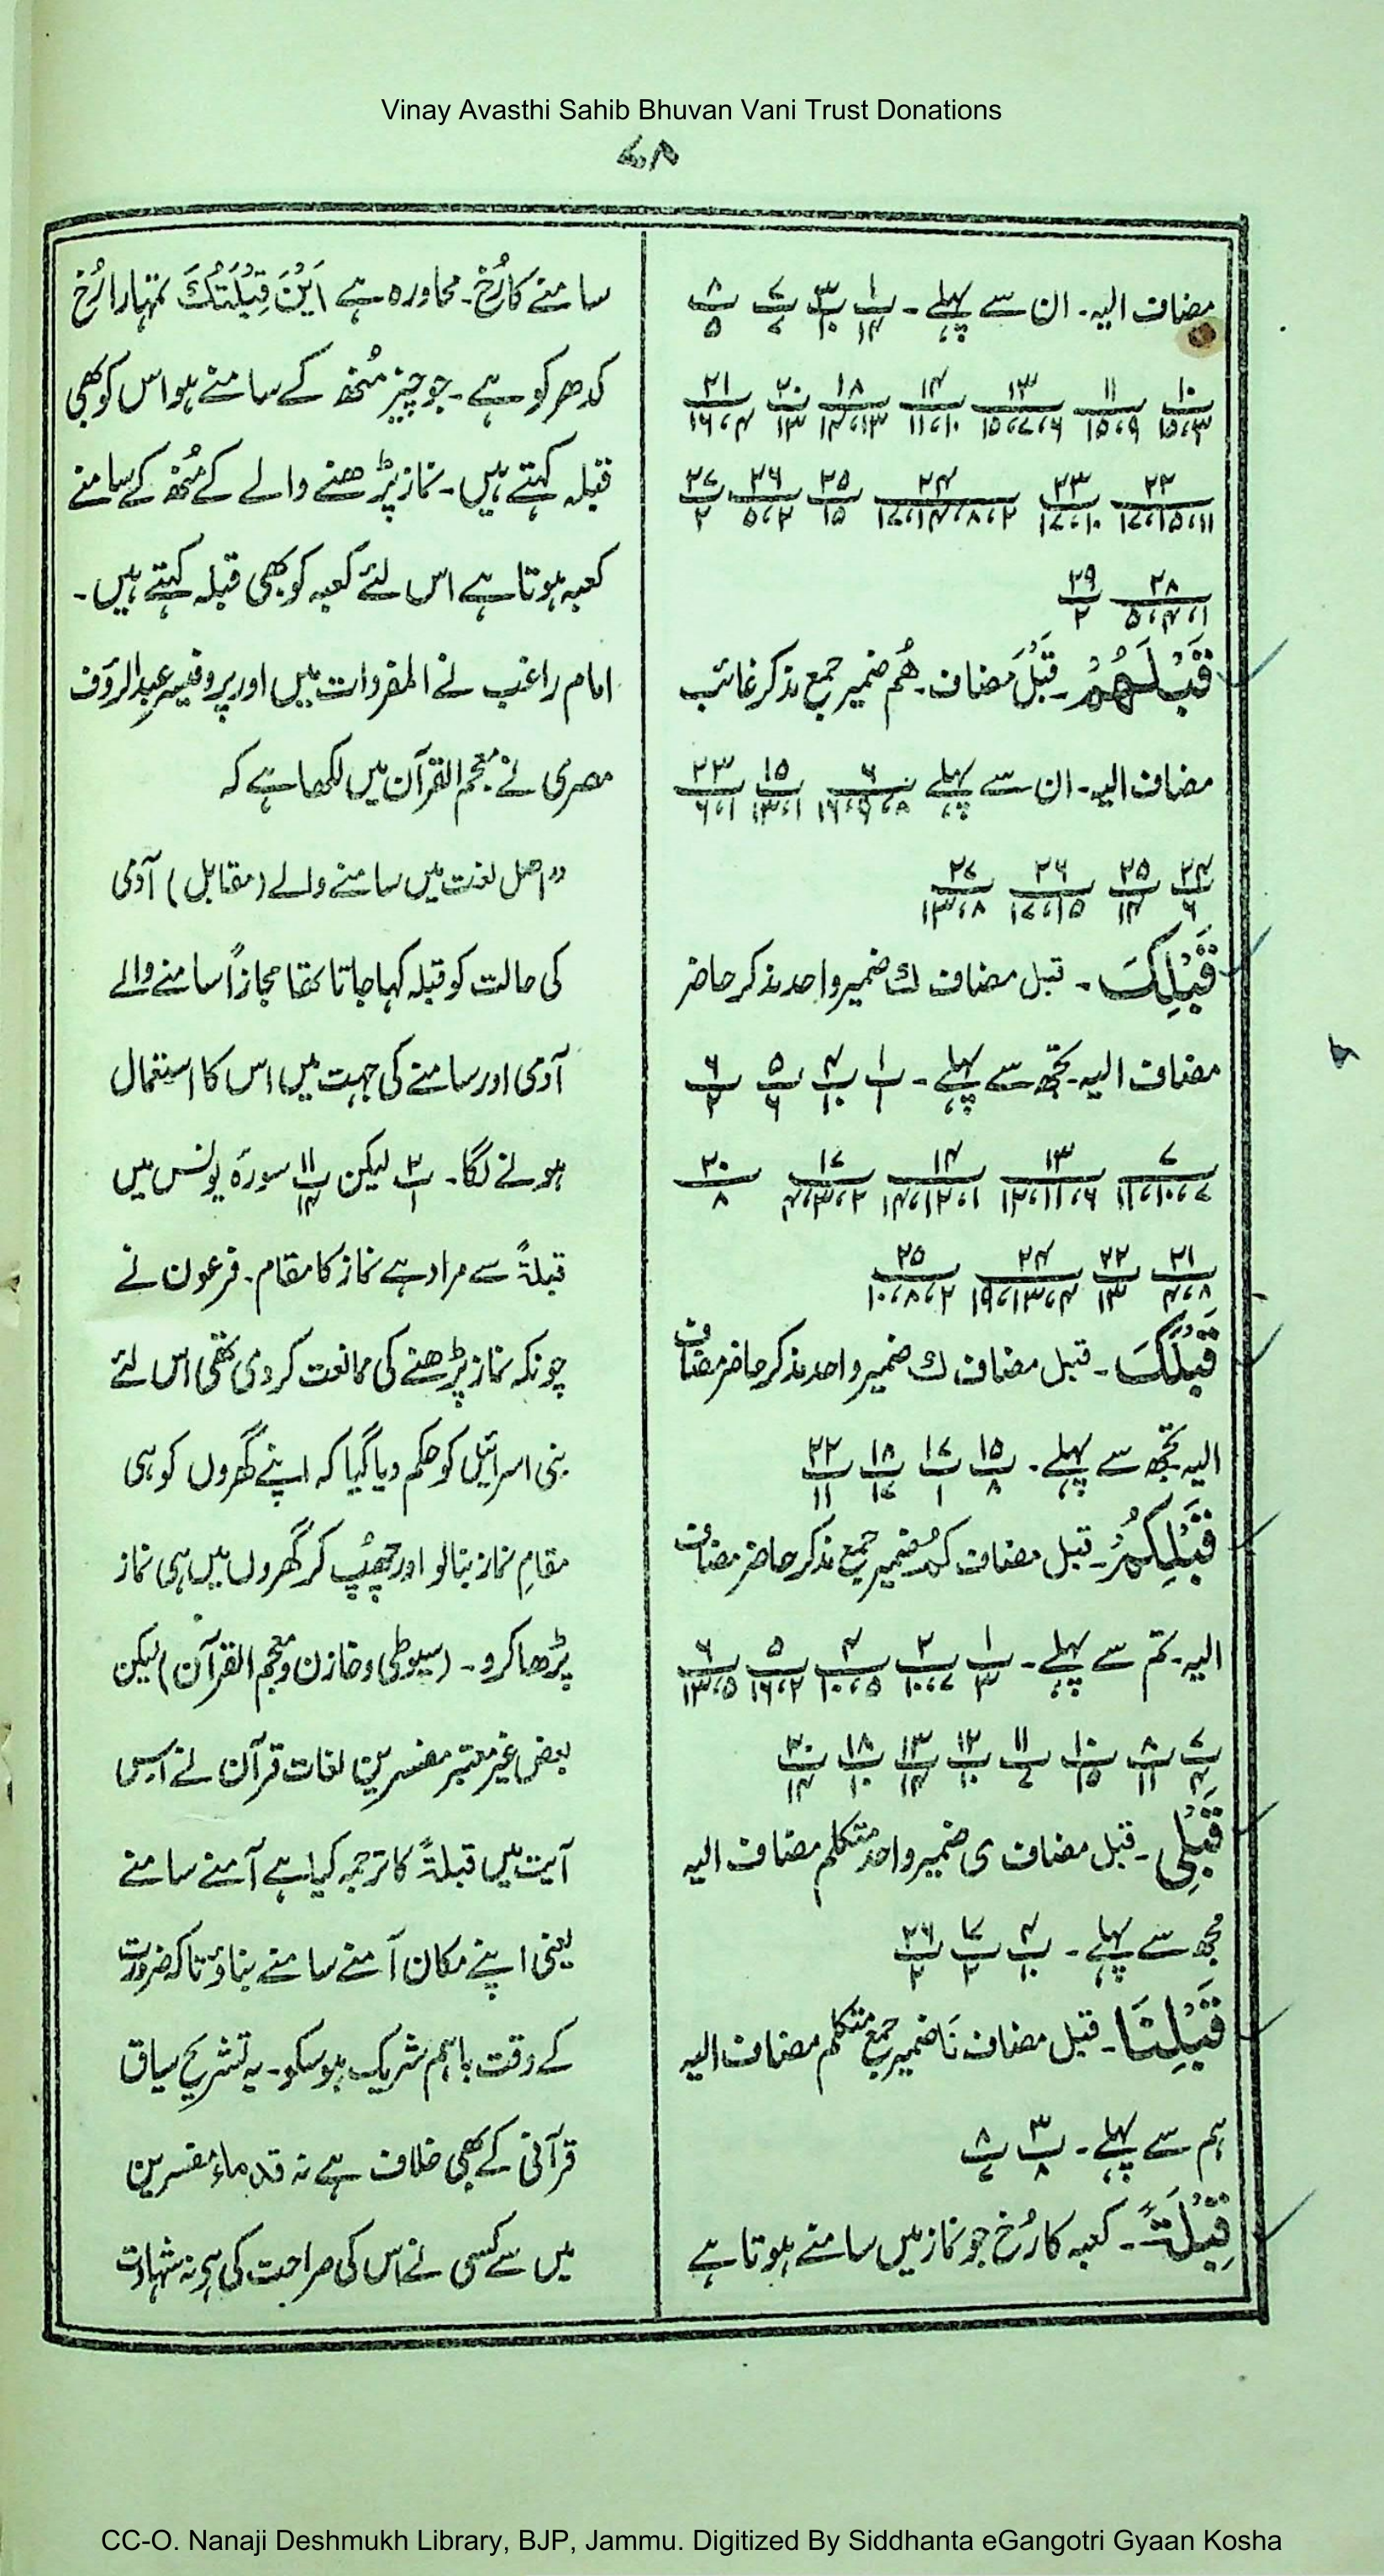 Vinay Avasthi Sahib Bhuvan Vani Trust Donations
۷۸
مضاف الیہ۔ ان سے پہلے۔ پ۱/۱۴ پ۳/۱۰ پ۷/۷ پ۸/۵
۱۰/۱۵،۳ ۱۱/۱۵،۹ ۱۳/۱۵،۷،۶ ۱۴/۱۱،۱۰ ۱۸/۱۴،۱۳ ۲۰/۱۳ ۲۱/۱۶،۴
۲۲/۱۷،۱۵،۱۱ ۲۳/۱۷،۱۰ ۲۴/۱۷،۱۴،۸،۲ ۲۵/۱۵ ۲۶/۵،۲ ۲۷/۲
۲۸/۵،۴،۱ ۲۹/۲
قَبْلَهُمْ۔ قَبْلَ مضاف۔ هُم ضمیر جمع مذکر غائب
مضاف الیہ۔ ان سے پہلے ۶/۱۶،۹،۸ ۱۵/۱۳،۱ ۲۳/۶،۱
۲۴/۶ ۲۵/۱۴ ۲۶/۱۷،۱۵ ۲۷/۱۳،۸
قَبْلِكَ۔ قبل مضاف ك ضمیر واحد مذکر حاضر
مضاف الیہ۔ تجھ سے پہلے۔ پ۱/۱ پ۴/۱۰ پ۵/۶ پ۶/۲
۷/۱۱،۱۰،۷ ۱۳/۱۲،۱۱،۶ ۱۴/۱۴،۱۲،۱ ۱۷/۴،۳،۲ ۲۰/۸
۲۱/۴،۸ ۲۲/۱۳ ۲۴/۱۹،۱۳،۴ ۲۵/۱۰،۸،۲
قَبْلَكَ۔ قبل مضاف ك ضمیر واحد مذکر حاضر مضاف
الیہ تجھ سے پہلے۔ پ۱۵/۸ پ۱۷/۱ پ۱۸/۱۷ پ۲۲/۱۱
قَبْلِكُمْ۔ قبل مضاف كُمْ ضمیر جمع مذکر حاضر مضاف
الیہ۔ تم سے پہلے۔ ۱/۳ ۲/۱۰،۷ ۴/۱۰،۵ ۵/۱۶،۲ ۶/۱۳،۵
پ۷/۴ پ۸/۱۱ پ۱۰/۱۵ پ۱۱/۷ پ۱۲/۱۰ پ۱۳/۱۴ پ۱۸/۱۰ پ۲۰/۱۴
قَبْلِی۔ قبل مضاف ی ضمیر واحد متکلم مضاف الیہ
مجھ سے پہلے۔ پ۴/۱۰ پ۱۷/۲ پ۲۶/۲
قَبْلِنَا۔ قبل مضاف نَا ضمیر جمع متکلم مضاف الیہ
ہم سے پہلے۔ پ۳/۸ پ۸/۷
قِبْلَةً۔ کعبہ کا رُخ جو نماز میں سامنے ہوتا ہے
سامنے کا رُخ۔ محاورہ ہے اَیْنَ قِبْلَتُكَ تمہارا رُخ
کدھر کو ہے۔ جو چیز مُنھ کے سامنے ہو اس کو بھی
قبلہ کہتے ہیں۔ نماز پڑھنے والے کے مُنھ کے سامنے
کعبہ ہوتا ہے اس لئے کعبہ کو بھی قبلہ کہتے ہیں۔
امام راغب نے المفردات میں اور پروفیسر عبدالرؤف
مصری نے معجم القرآن میں لکھا ہے کہ
”اصل لغت میں سامنے والے (مقابل) آدمی
کی حالت کو قبلہ کہا جاتا تھا مجازاً سامنے والے
آدمی اور سامنے کی جہت میں اس کا استعمال
ہونے لگا۔ پ۲/۱ لیکن پ۱۱/۱۴ سورہ یونس میں
قبلۃً سے مراد ہے نماز کا مقام۔ فرعون نے
چونکہ نماز پڑھنے کی ممانعت کردی تھی اس لئے
بنی اسرائیل کو حکم دیا گیا کہ اپنے گھروں کو ہی
مقامِ نماز بنالو اور چھپ کر گھروں میں ہی نماز
پڑھا کرو۔ (سیوطی و خازن و معجم القرآن) لیکن
بعض غیر معتبر مفسرین لغات قرآن نے اس
آیت میں قبلۃً کا ترجمہ کیا ہے آمنے سامنے
یعنی اپنے مکان آمنے سامنے بناؤ تاکہ ضرورت
کے وقت باہم شریک ہوسکو۔ یہ تشریح سیاق
قرآنی کے بھی خلاف ہے نہ قدماء مفسرین
میں سے کسی نے اس کی صراحت کی ہے نہ شہادت
CC-O. Nanaji Deshmukh Library, BJP, Jammu. Digitized By Siddhanta eGangotri Gyaan Kosha